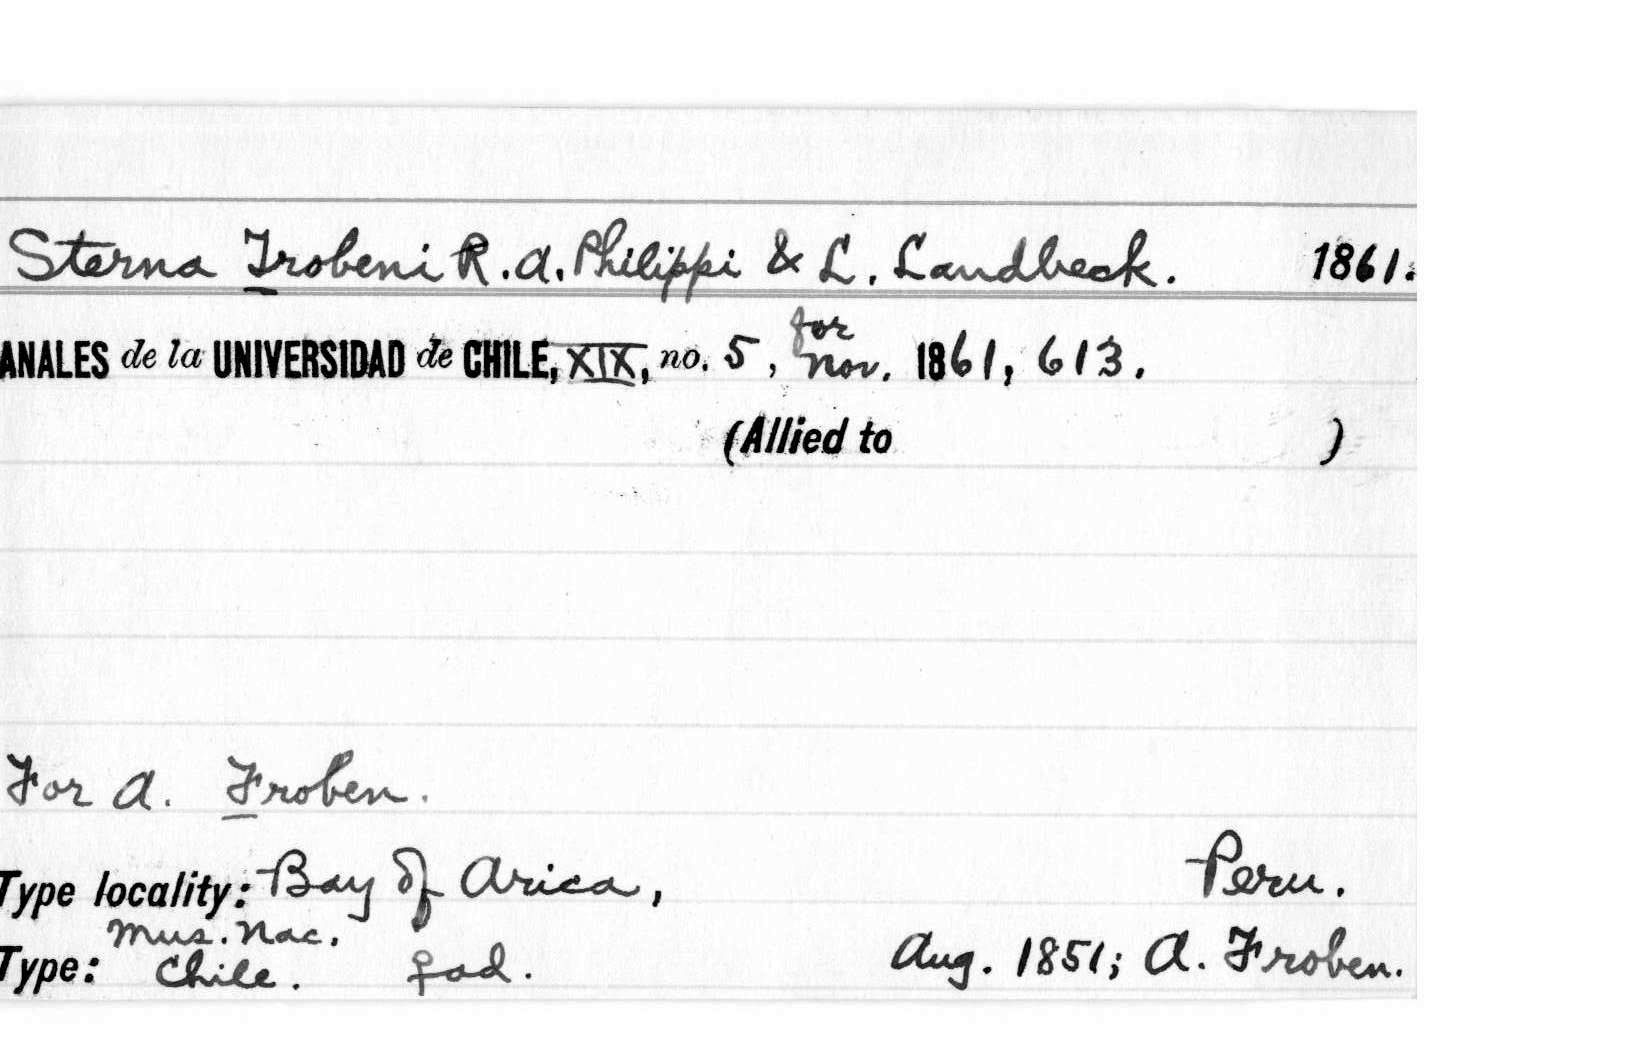 Sterna Frobeni R.A. Philippi & L. Landbeck. 1861.
ANALES de la UNIVERSIDAD de CHILE, XIX, no. 5, for Nov. 1861, 613.
(Allied to )
For A. Froben.
Type locality: Bay of Arica, Peru.
Mus. Nac.
Type: Chile. ♀ad. Aug. 1851; A. Froben.